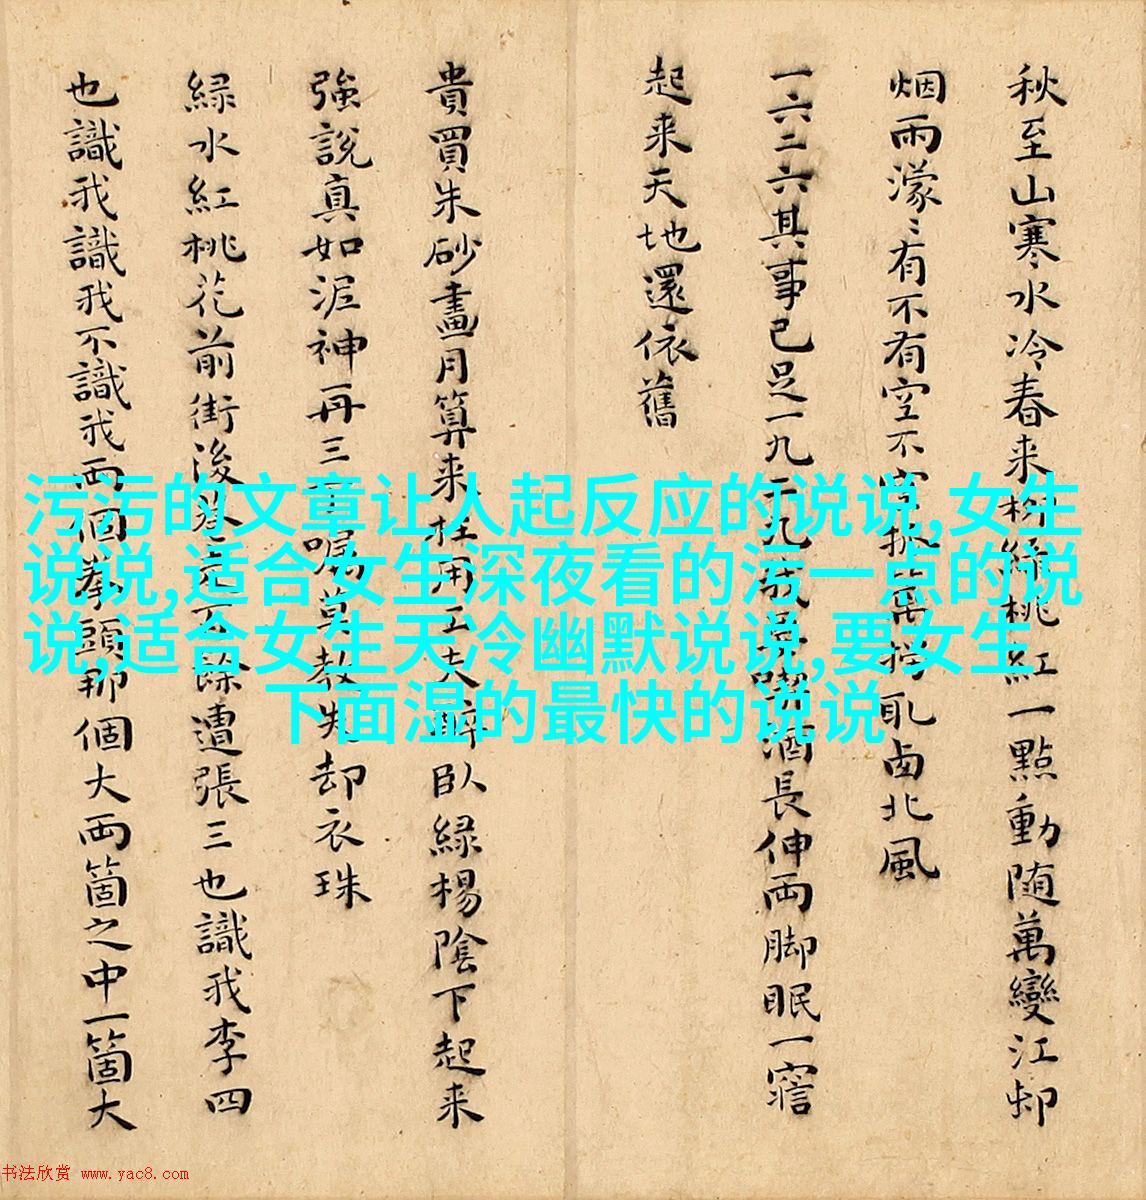 秋至山寒水冷春来柳綠桃紅一點動随萬變江邨
烟雨濛〻有不有空不空 北風
一六二六其事已足一九二九我 酒長伸両脚眠一寤
起来天地還依舊
貴買朱砂畫月算来枉用工夫醉臥緑楊陰下起来
強説真如泥神再三 嘱莫教失却衣珠
緑水紅桃花前街後巷 餘遭張三也識我李四
也識我識我不識我両個拳頭那個大両箇之中一箇大
污污的文章让人起反应的说说,女生
说说,适合女生深夜看的污一点的说
说,适合女生天冷幽默说说,要女生
下面湿的最快的说说
书法欣赏 www.yac8.com